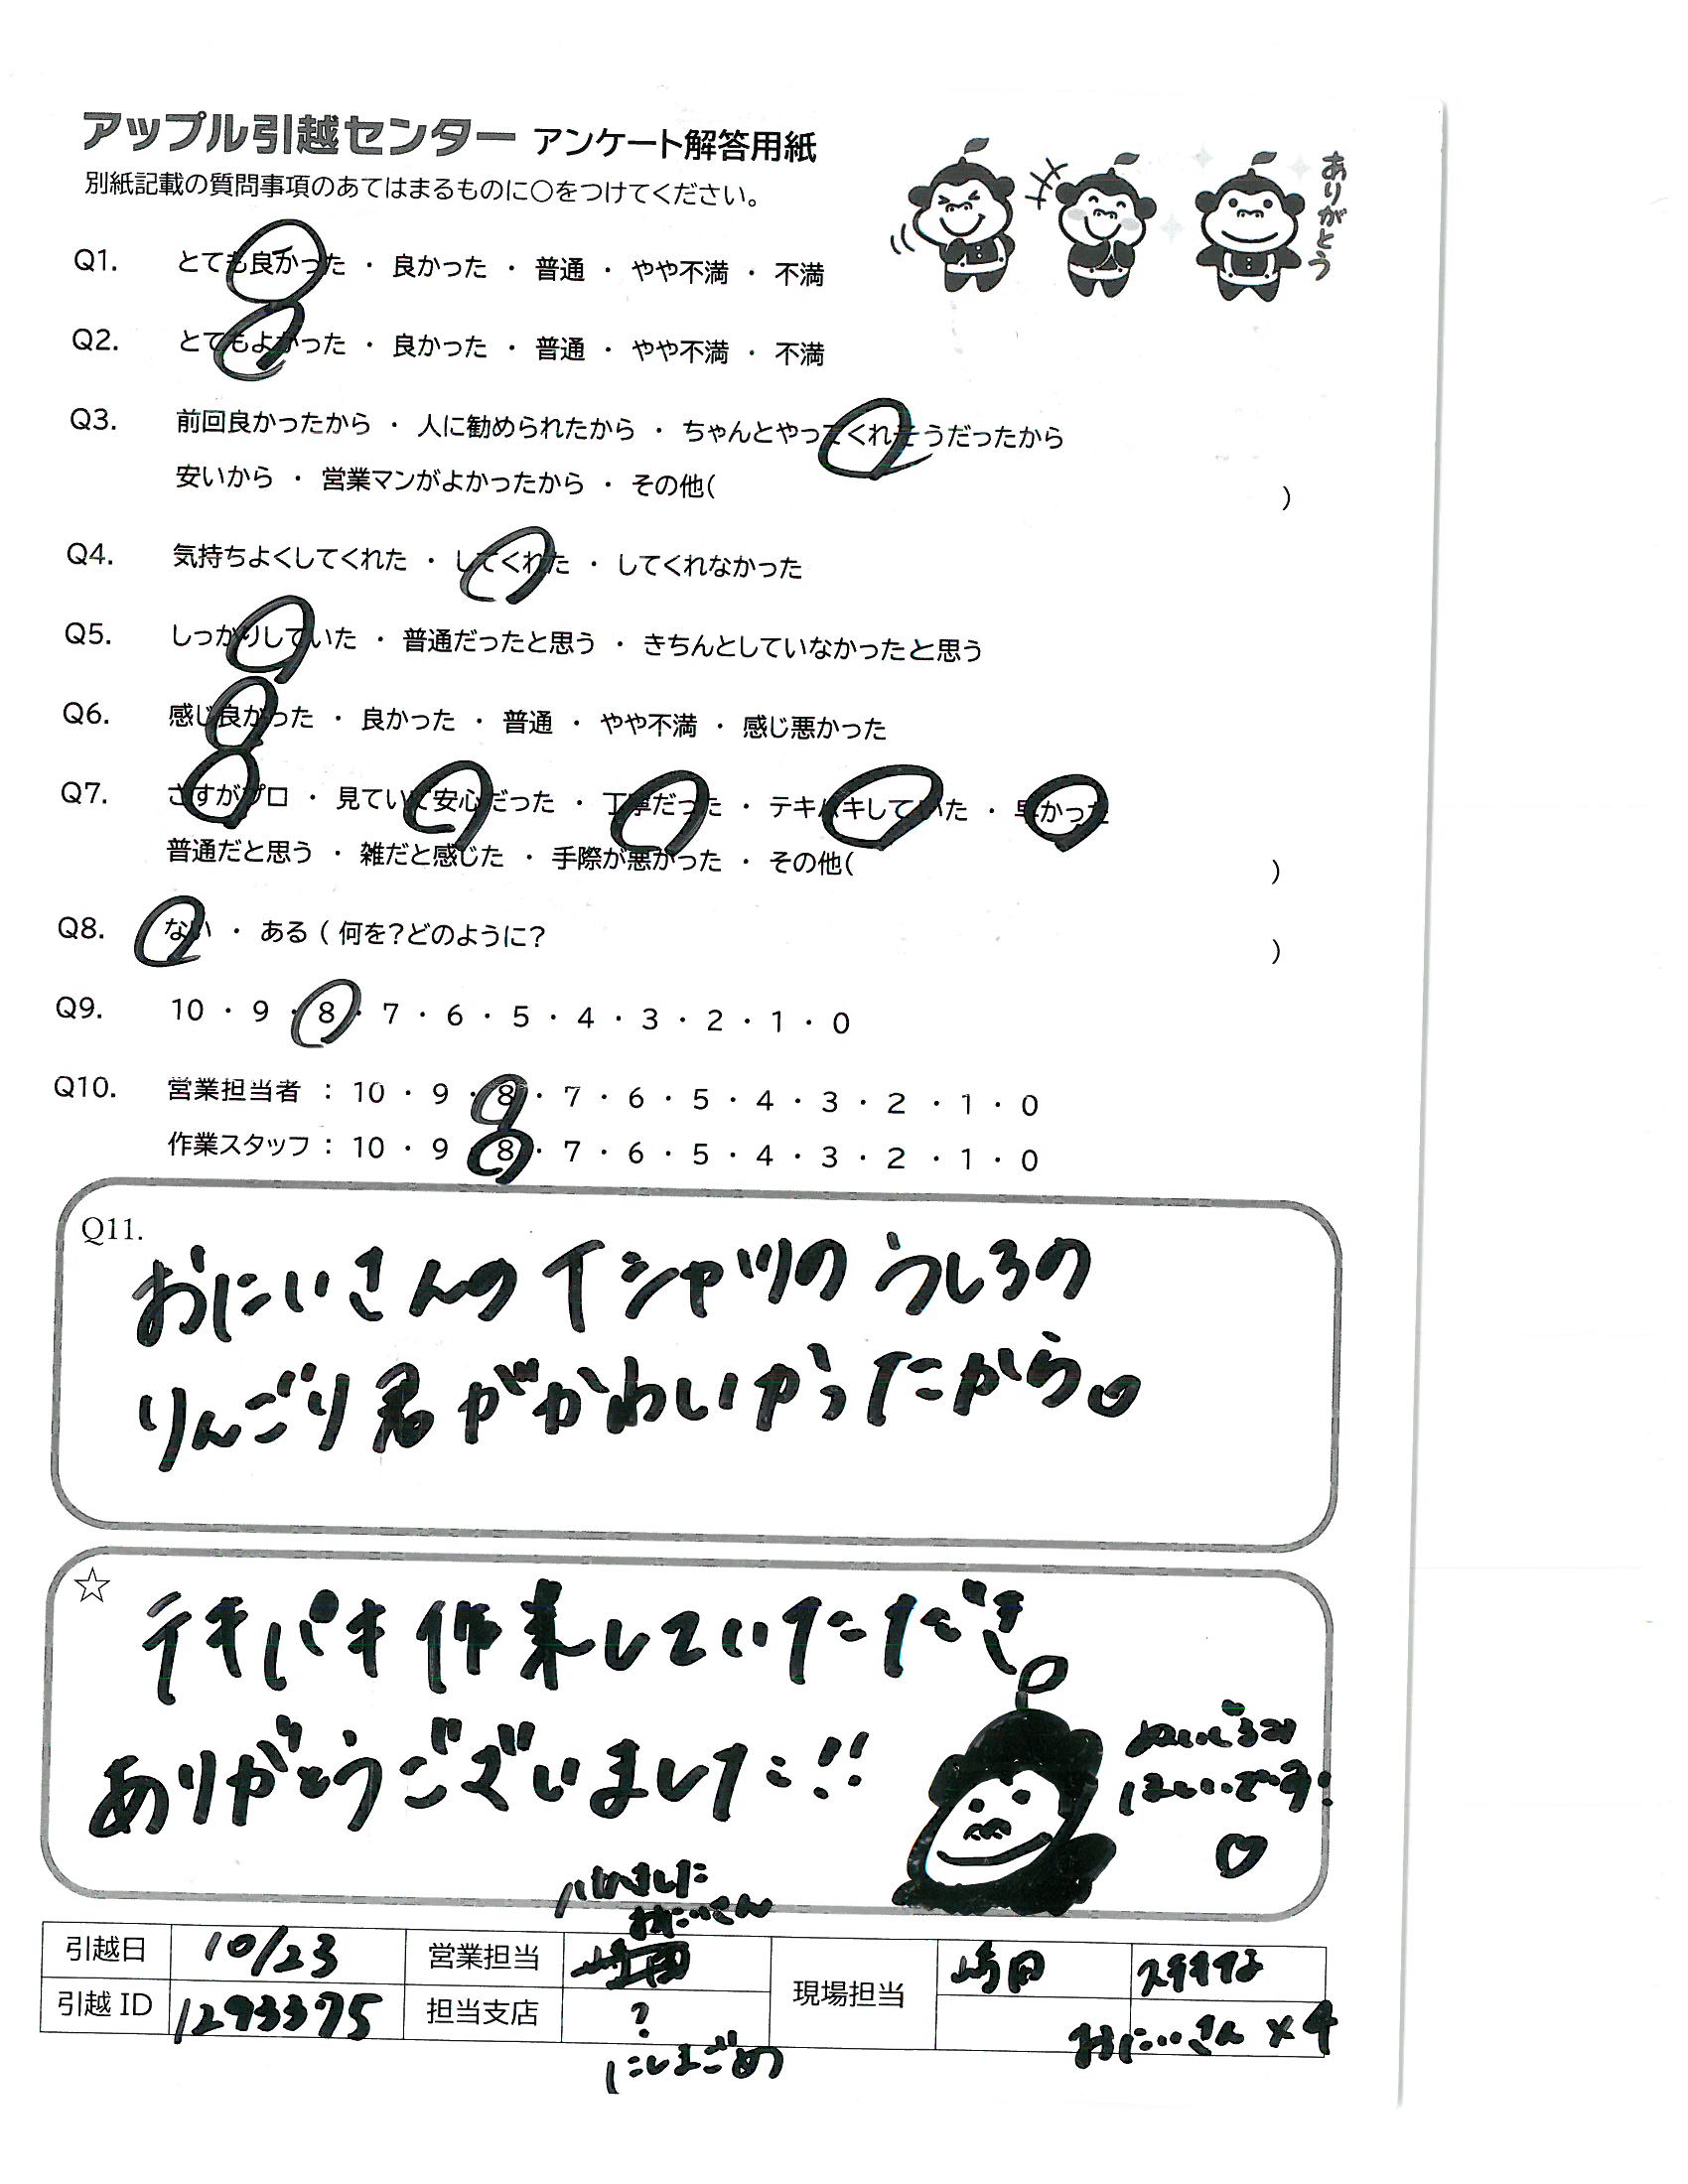 アップル引越センター アンケート解答用紙
別紙記載の質問事項のあてはまるものに○をつけてください。
ありがとう
Q1. とても良かった ・ 良かった ・ 普通 ・ やや不満 ・ 不満
Q2. とてもよかった ・ 良かった ・ 普通 ・ やや不満 ・ 不満
Q3. 前回良かったから ・ 人に勧められたから ・ ちゃんとやってくれそうだったから
安いから ・ 営業マンがよかったから ・ その他( )
Q4. 気持ちよくしてくれた ・ してくれた ・ してくれなかった
Q5. しっかりしていた ・ 普通だったと思う ・ きちんとしていなかったと思う
Q6. 感じ良かった ・ 良かった ・ 普通 ・ やや不満 ・ 感じ悪かった
Q7. さすがプロ ・ 見ていて安心だった ・ 丁寧だった ・ テキパキしていた ・ 早かった
普通だと思う ・ 雑だと感じた ・ 手際が悪かった ・ その他( )
Q8. ない ・ ある ( 何を?どのように? )
Q9. 10 ・ 9 ・ 8 ・ 7 ・ 6 ・ 5 ・ 4 ・ 3 ・ 2 ・ 1 ・ 0
Q10. 営業担当者 : 10 ・ 9 ・ 8 ・ 7 ・ 6 ・ 5 ・ 4 ・ 3 ・ 2 ・ 1 ・ 0
作業スタッフ : 10 ・ 9 ・ 8 ・ 7 ・ 6 ・ 5 ・ 4 ・ 3 ・ 2 ・ 1 ・ 0
Q11.
おにいさんのTシャツのうしろの
りんごり君がかわいかったから♡
☆
テキパキ作業していただき
ありがとうございました!!
ぬいぐるみ
ほしいです!
♡
おにいさん
引越日 10/23 営業担当 現場担当 嶋田 ステキな
引越 ID 1293375 担当支店 ? おにいさん ×4
にしまごめ